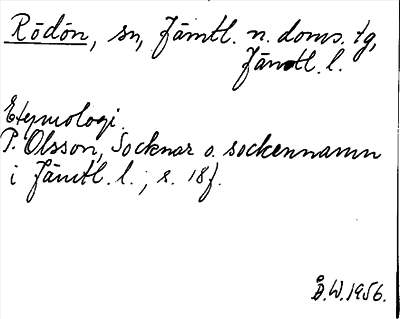 Rödön, sn, Jämtl. n. doms. tg,
Jämtl. l.
Etymologi.
P. Olsson, Socknar o. sockennamn
i Jämtl. l.; s. 18f.
B.W. 1956.